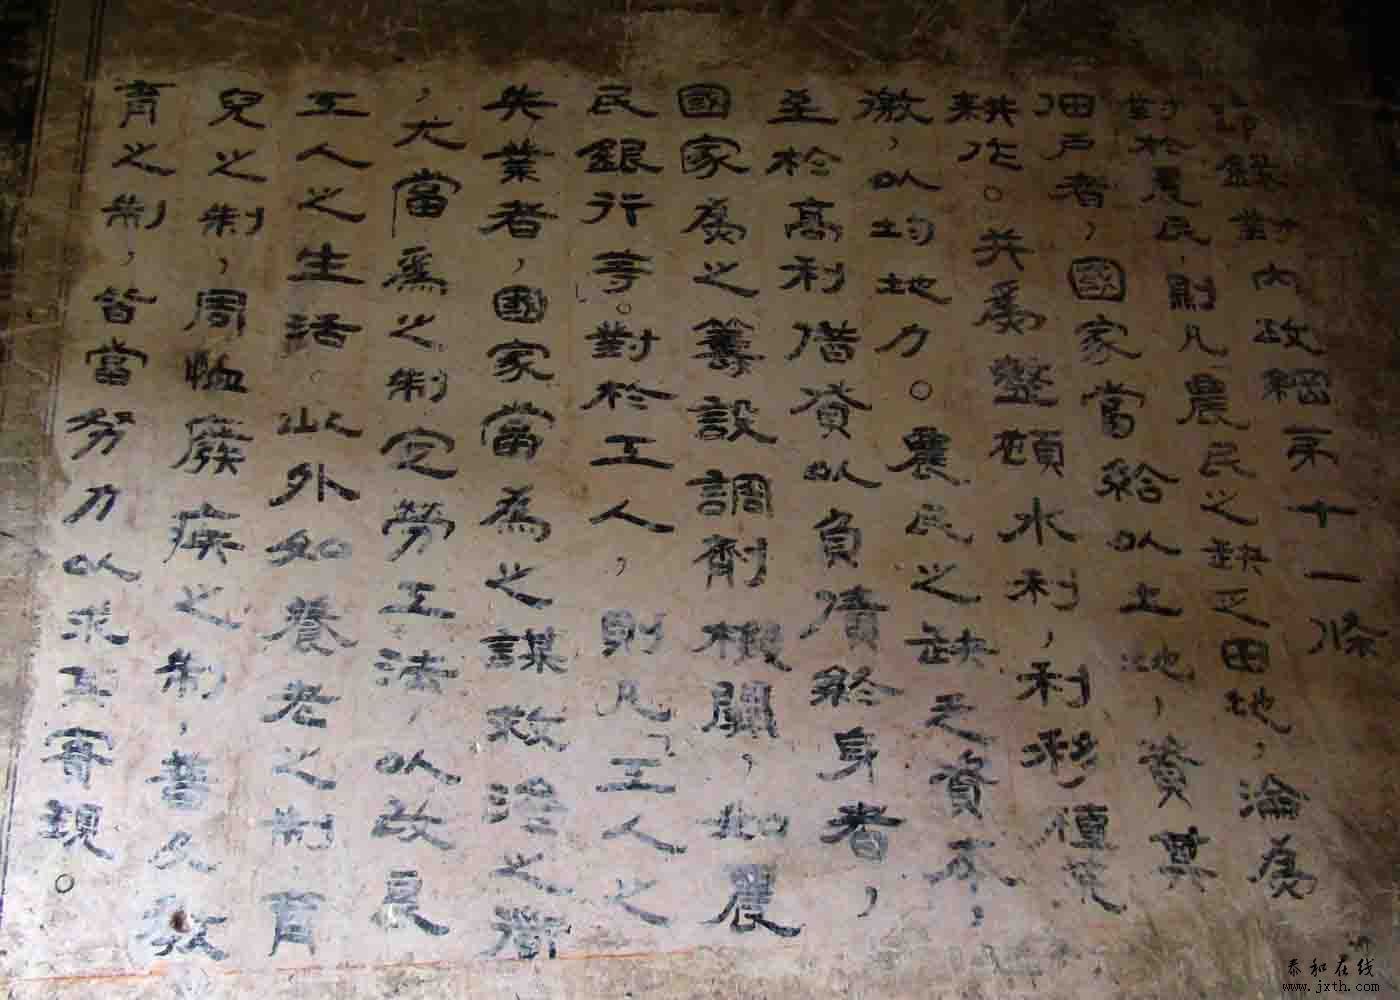 節錄對內政綱第十一條
對於農民,則凡農民之缺乏田地,淪為
佃戶者,國家當給以土地,資其
耕作。并為整頓水利,利移植荒
徼,以均地力。農民之缺乏資本,
至於高利借貸以負債終身者,
國家為之籌設調劑機關,如農
民銀行等。對於工人,則凡「工人之
失業者,國家當為之謀救治之
,尤當為之制定勞工法,以改良
工人之生活。此外如養老之制,育
兒之制,周恤廢疾之制,普及教
育之制,皆當努力以求其實現。
泰和在线
www.jxth.com